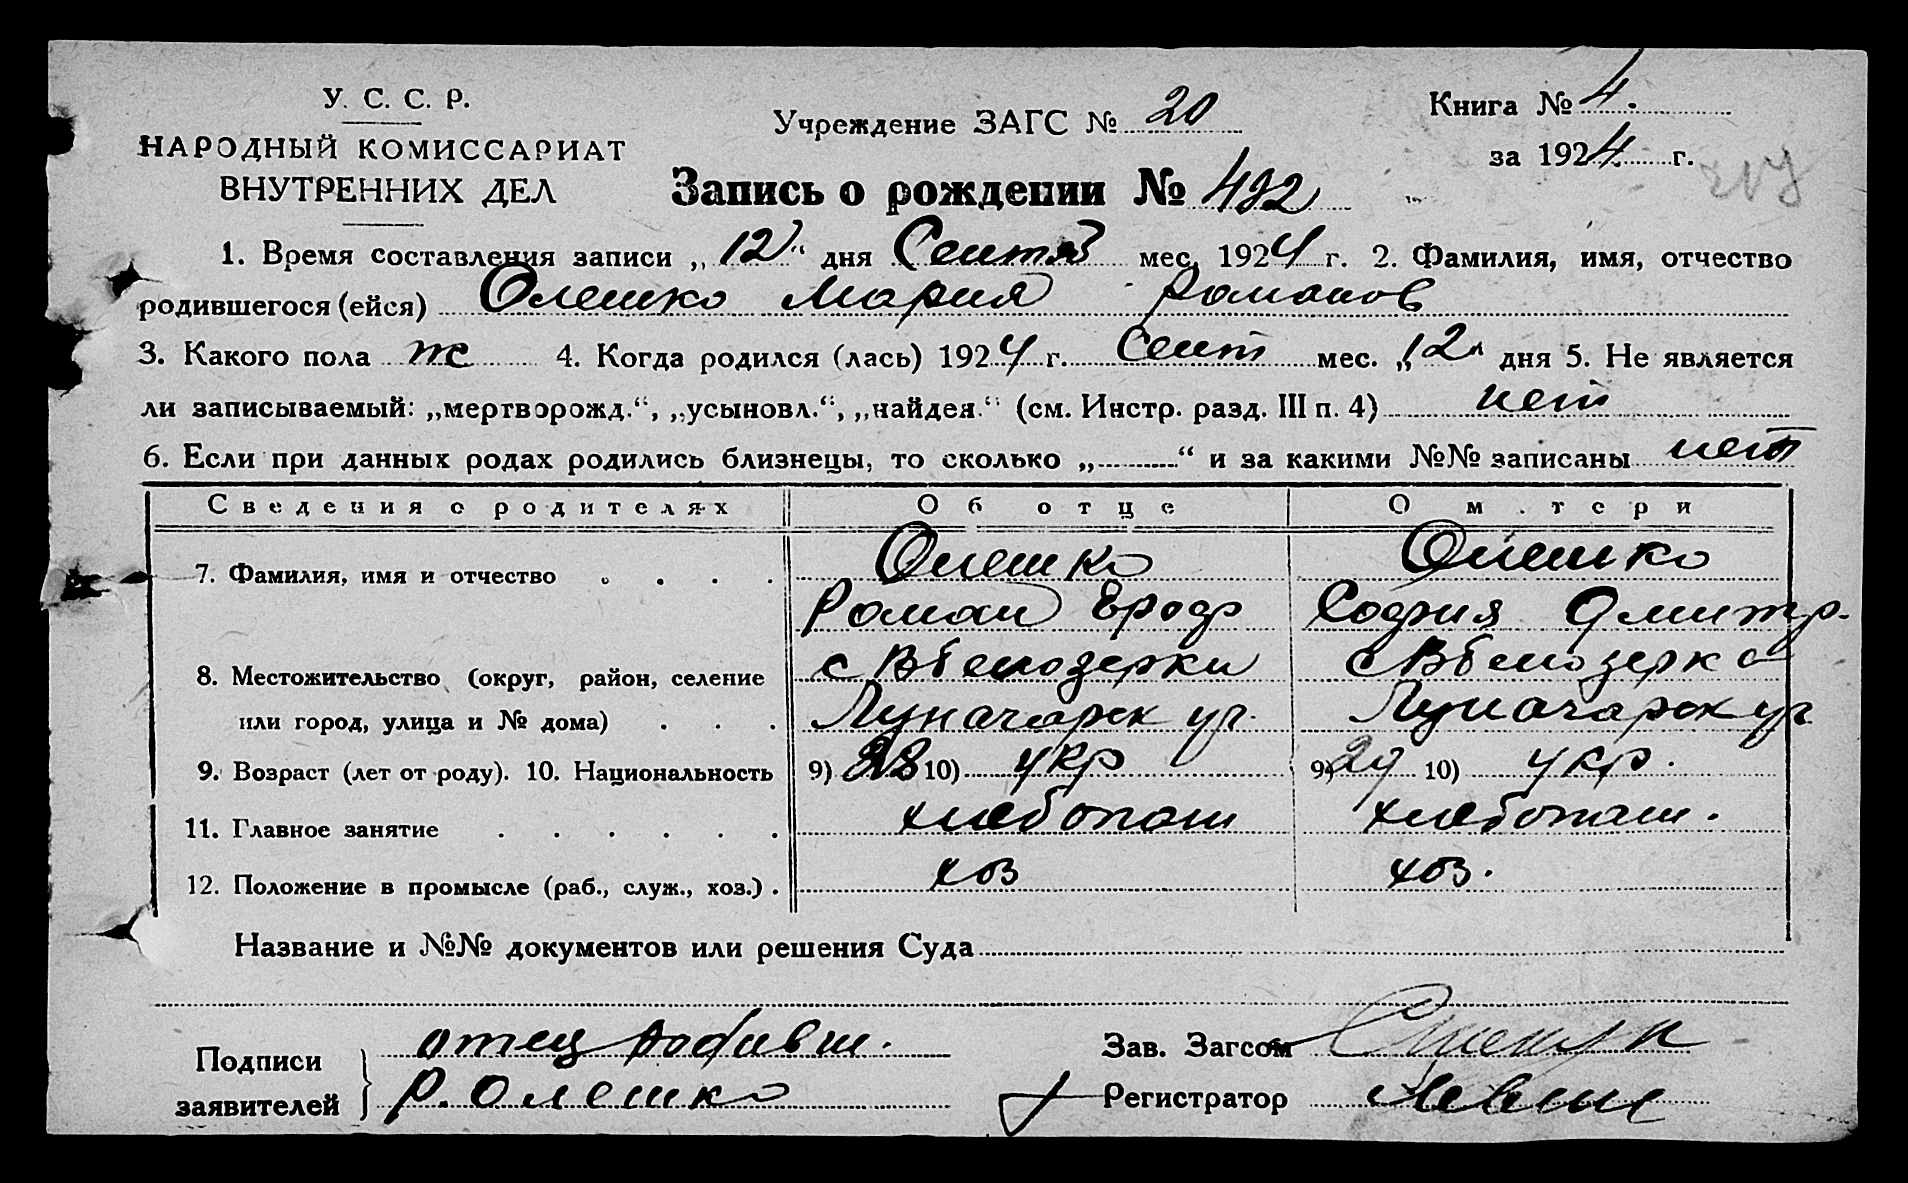 У. С. С. Р.
НАРОДНЫЙ КОМИССАРИАТ
ВНУТРЕННИХ ДЕЛ
Учреждение ЗАГС № 20
Книга № 4.
за 1924 г.
Запись о рождении № 492
1. Время составления записи „12“ дня Сентяб мес. 1924 г. 2. Фамилия, имя, отчество
родившегося (ейся) Олешко Мария Романов
3. Какого пола ж 4. Когда родился (лась) 1924 г. Сент мес. „12“ дня 5. Не является
ли записываемый: „мертворожд.“, „усыновл.“, „найден.“ (см. Инстр. разд. III п. 4) нет
6. Если при данных родах родились близнецы, то сколько „ “ и за какими №№ записаны нет
Сведения о родителях Об отце О матери
7. Фамилия, имя и отчество Олешко Олешко
Роман Ероф София Дмитр.
8. Местожительство (округ, район, селение с Вбелозерки с Вбелозерка
или город, улица и № дома) Луначарск ул. Луначарск ул
9. Возраст (лет от роду). 10. Национальность 9) 28 10) укр 9) 29 10) укр.
11. Главное занятие хлебопаш хлебопаш.
12. Положение в промысле (раб., служ., хоз.) хоз хоз.
Название и №№ документов или решения Суда
Подписи заявителей отец
Р. Олешко
Зав. Загсом
Регистратор